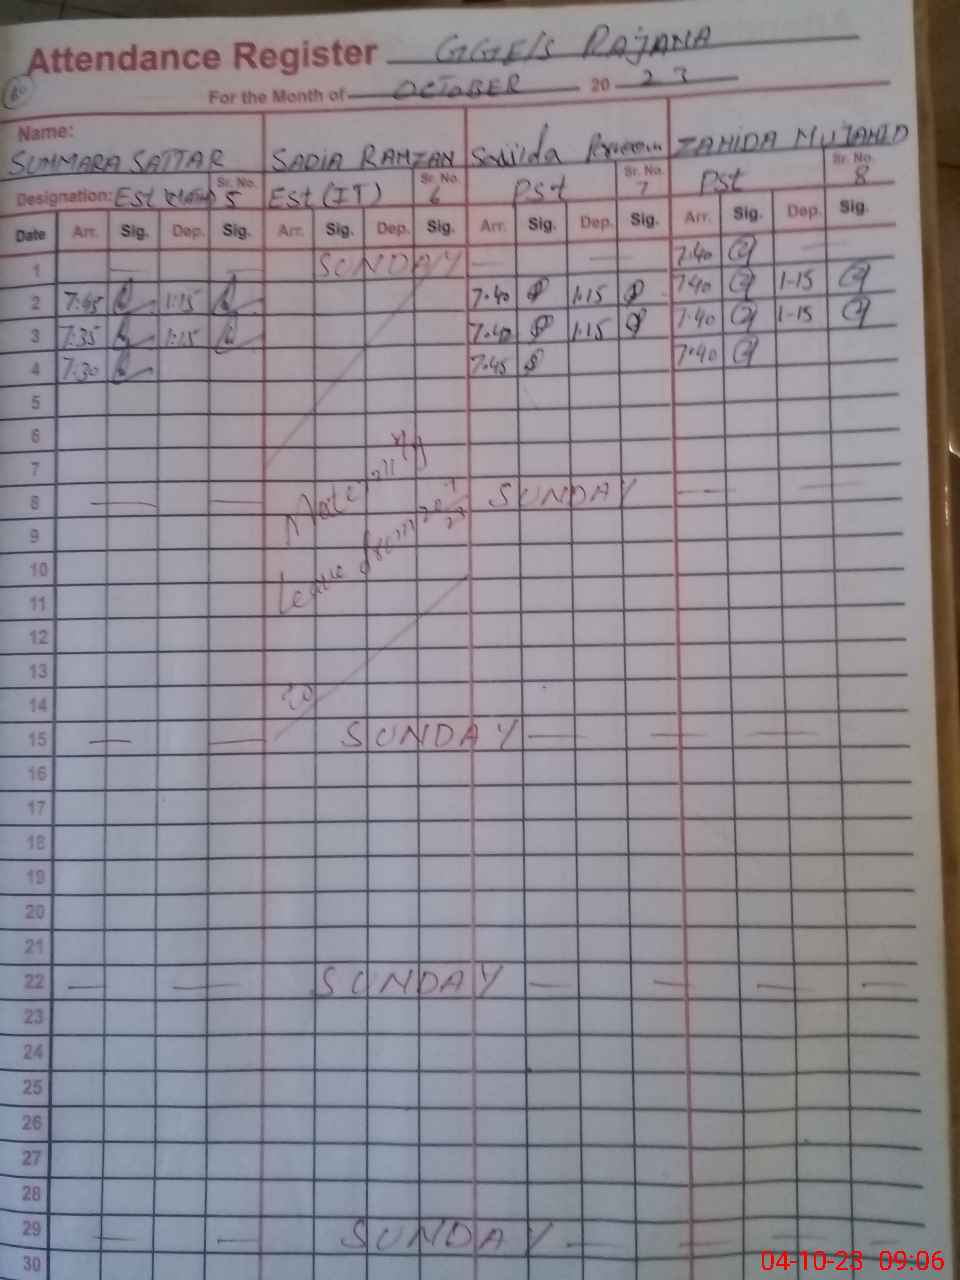 Attendance Register GGE/S RAJANA
For the Month of OCTOBER 20 23
Name:
SUMMARA SATTAR SADIA RAMZAN ZAHIDA MUJAHID
Designation: Est Sr. No. 5 Est (IT) Sr. No. 6 Pst Sr. No. 7 Pst Sr. No. 8
Date Arr. Sig. Dep. Sig. Arr. Sig. Dep. Sig. Arr. Sig. Dep. Sig. Arr. Sig. Dep. Sig.
1 — — SUNDAY — — 7:40 —
2 7:45 1:15 7.40 1.15 7:40 1-15
3 7:35 1:15 7:40 1:15 7.40 1-15
4 7:30 7:45 7:40
5
6
7
8 — — SUNDAY — —
9
Leave from
10
11
12
13
14
15 — — SUNDAY — — —
16
17
18
19
20
21
22 — — SUNDAY — — — —
23
24
25
26
27
28
29 — — SUNDAY — — — —
30
04-10-23 09:06